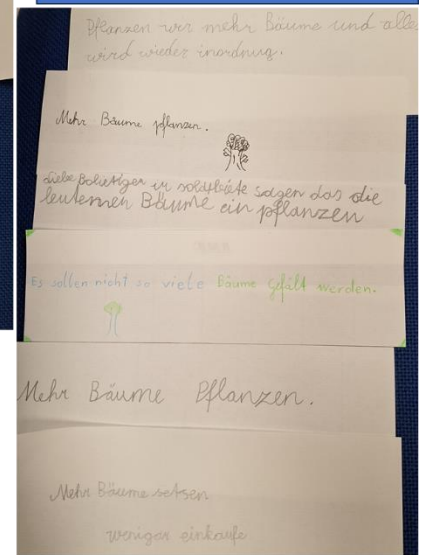 Pflanzen wir mehr Bäume und alles
wird wieder inordnug.
Mehr Bäume pflanzen.
Liebe Politiger ir soldtet leute sagen das die
leutemer Bäume ein pflanzen
Es sollen nicht so viele Bäume gefält werden.
Mehr Bäume Pflanzen.
Mehr Bäume setsen
weniger einkaufe